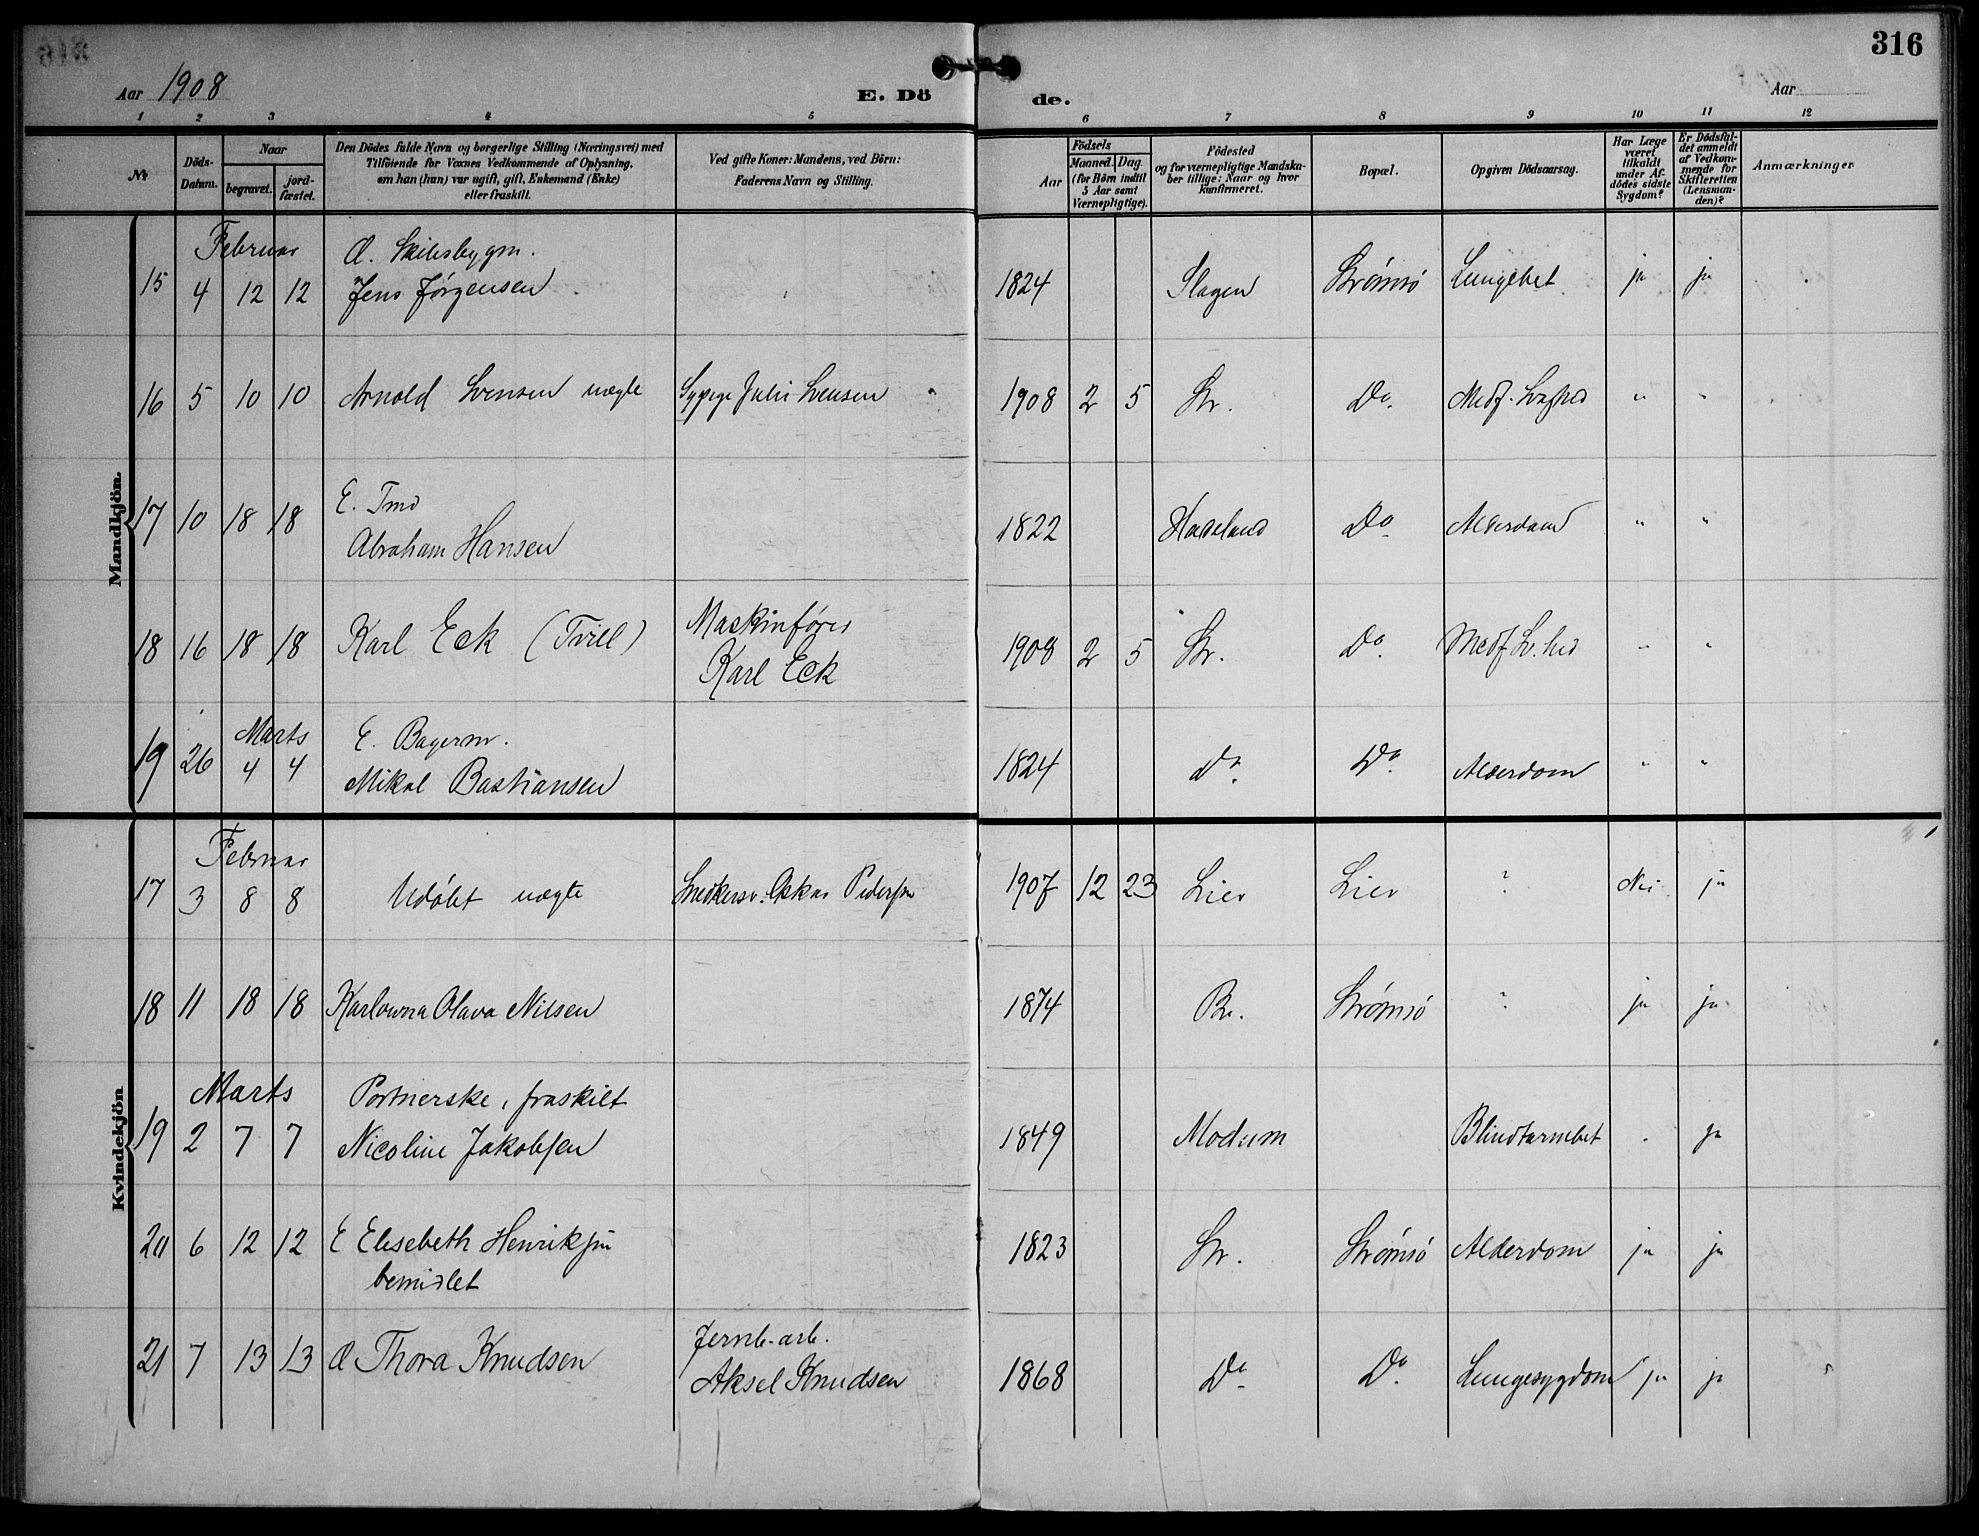 316
Aar 1908
E. Dö
de.
Aar
1 2 3 4 5 6 7 8 9 10 11 12
№
Döds-
Datum.
Naar
begravet.
jord-
fæstet.
Den Dödes fulde Navn og borgerlige Stilling (Næringsvei) med
Tilföiende for Voxnes Vedkommende af Oplysning,
om han (hun) var ugift, gift, Enkemand (Enke)
eller fraskilt.
Ved gifte Koner: Mandens, ved Börn:
Faderens Navn og Stilling.
Födsels
Aar
Maaned.
Dag.
(for Börn indtil
5 Aar samt
Værnepligtige).
Födested
og for værnepligtige Mandska-
ber tillige: Naar og hvor
konfirmeret.
Bopæl.
Opgiven Dödsaarsag.
Har Læge
været
tilkaldt
under Af-
dödes sidste
Sygdom?
Er Dödsfal-
det anmeldt
af Vedkom-
mende for
Skifteretten
(Lensman-
den)?
Anmærkninger
Mandkjön.
Februar
15 4 12 12 Skibsbygm.
Jens Jørgensen 1824 Slagen Strømsø Lungebet. ja ja
16 5 10 10 Arnold Svensen uægte Sypige Julie Svensen 1908 2 5 Str. Do. Medf. Svaghed " "
17 10 18 18 E. Tmd
Abraham Hansen 1822 Hadeland Do Alderdom " "
18 16 18 18 Karl Eck (Tvill) Maskinfører
Karl Eck 1908 2 5 Str. Do. Medf. Sv.hed " "
Marts
19 26 4 4 E. Bagerm.
Mikal Bastiansen 1824 do. Do. Alderdom " "
Kvindekjön
Februar
17 3 8 8 Udøbt uægte Snedkersv. Oskar Pedersen 1907 12 23 Lier Lier ? Nei ja
18 11 18 18 Olava Nilsen 1874 Br. Strømsø ? ja ja
Marts
19 2 7 7 Portnerske, fraskilt
Nicoline Jakobsen 1849 Modum Blindtarmbet . ja
20 6 12 12 E Elisebeth Henriksen
bemidlet 1823 Str. Strømsø Alderdom ja ja
21 7 13 13 Thora Knudsen Jernb.-arb.
Aksel Knudsen 1868 Do Do. Lungesygdom ja ja